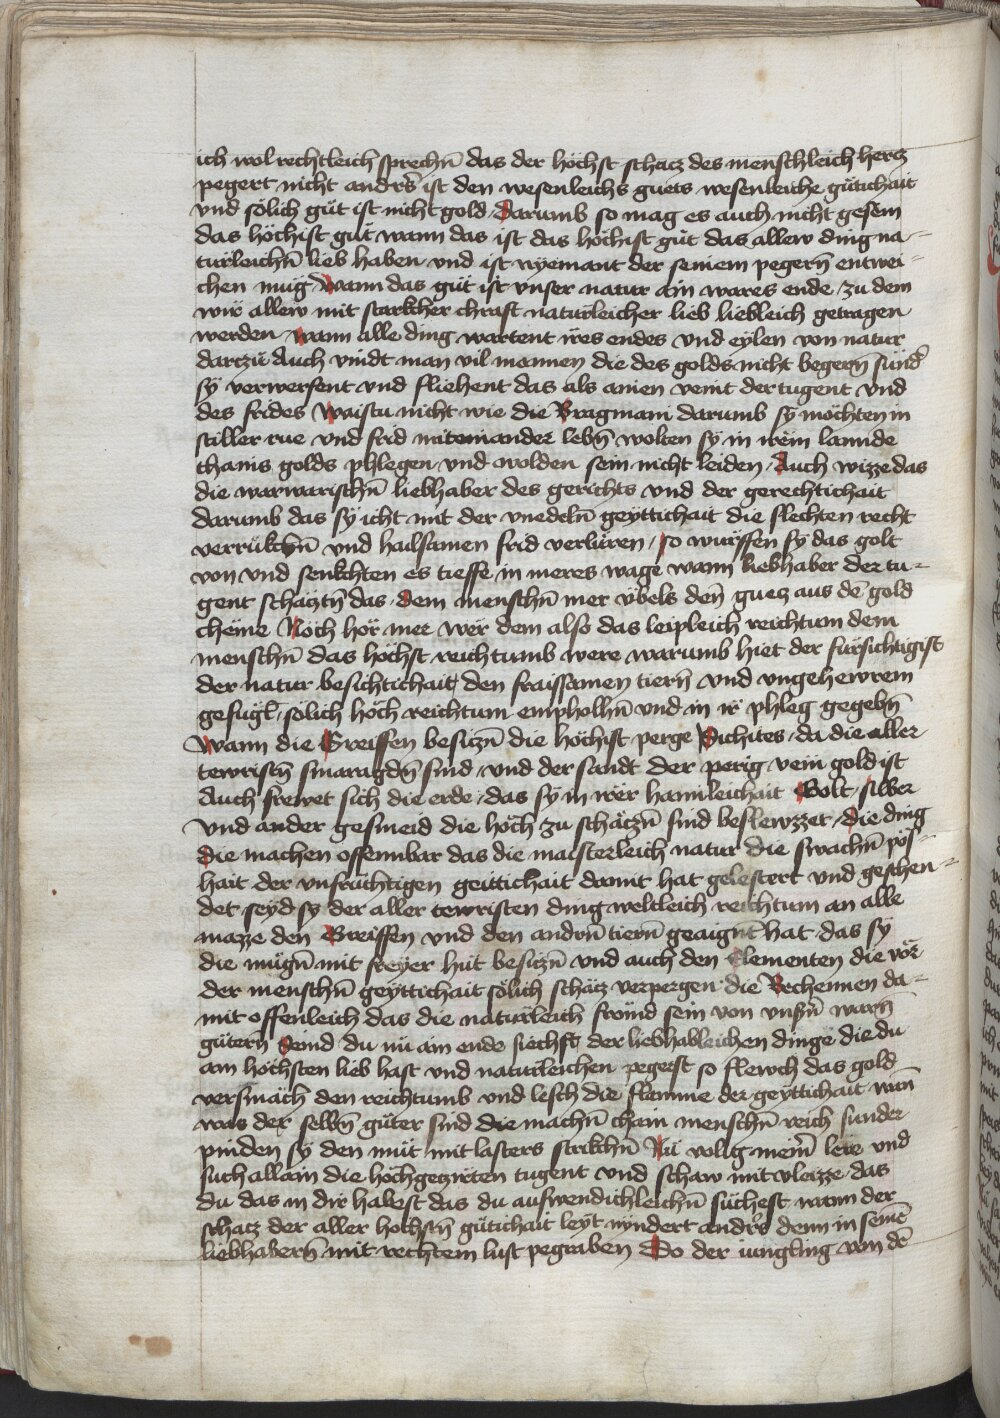 ich wol rechtleich sprechn̄ das der höchst schacz des menschleich hercz
pegert nicht andr̄s ist den wesenleichs guets wesenleiche gütichait
vnd sölich güt ist nicht gold Darumb so mag es auch nicht gesein
das höchist güt wann das ist das höchist güt das allew ding na-
türleichn̄ lieb haben vnd ist nyemant der seniem pegern̄ entwei-
chen müg Wann das güt ist vnser natur ain wares ende zu dem
wir allew mit starkcher chraft natürleicher lieb liebleich getragen
werden wann alle ding wartent irs endes vnd eylen von natur
darczü Auch vindt man vil mannen die des golds nicht begern̄ sund̄
sy verwerfent vnd fliehent das als ainen veint der tugent vnd
des frides Waistu nicht wie die Bragmani darumb sy möchten in
stiller rue vnd frid miteinander lebn̄ wolten sy in irem lannde
chains golds phlegen vnd wolden sein nicht leiden Auch wizze das
die warwarischn̄ liebhaber des gerichts vnd der gerechtichait
darumb das sy icht mit der vnedeln̄ geyttichait die slechten recht
verrukchn̄ vnd hailsamen frid verlüren so würffen sy das golt
von vnd senkchten es tieffe in meres wage wann liebhaber der tu-
gent schaczt̄n das dem menschn̄ mer vbels den̄ guez aus dē gold
chëme Noch hör mer wër dem also das leipleich reichtum dem
menschn̄ das höchst reichtumb were warumb hiet der fürsichtigist
der natur besichtichait den fraissamen tiern̄ vnd vngehewrem
gefugl sölich höch reichtum emphollhn̄ vnd in ir phleg gegebn̄
Wann die Greiffen besiczn̄ die höchist perge Sichites da die aller
tewristn̄ smaragdn̄ sind vnd der sandt der perig vein gold ist
Auch frewet sich die erde das sy in irër haimleichait Golt silber
vnd ander gesmeid die höch zu schäczn̄ sind beslewzzet die ding
die machen offennbar das die maisterleich natur die swachn̄ pös-
hait der vnfrüchtigen geittichait damit hat gelestert vnd geschen-
det seyd sy der aller tewristen ding weltleich reichtum an alle
mazze den Greiffen vnd den andrn̄ tiern̄ geaignt hat das sy
die mügn̄ mit freyer hüt besiczn̄ vnd auch den Elementen die vör
der menschn̄ geyttichait sölich schäcz verpergen die Bechennen da-
mit offenleich das die naturleich frömd sein von vnsn̄ warn̄
gütern̄ Seind du nü am ende siechst der liebhableichen dinge die du
am höchsten lieb hast vnd natürleichen pegerst so flewch das gold
versmäch den reichtumb vnd lesch die flamme der geyttichait wan̄
was der selbn̄ güter sind die machn̄ chain menschn̄ reich sunder
pinden sy den müt mit lasters strikchn̄ Nü volig meim̄ lere vnd
such allain die höchgeczirten tugent vnd schaw mit vleizze das
du das in dir habest das du auswendichleichn̄ süchest wann der
schacz der aller höchstn̄ gütichait leyt nyndert andr̄s denn in seinē
liebhabern̄ mit rechtem lust pegraben Do der iungling von dē